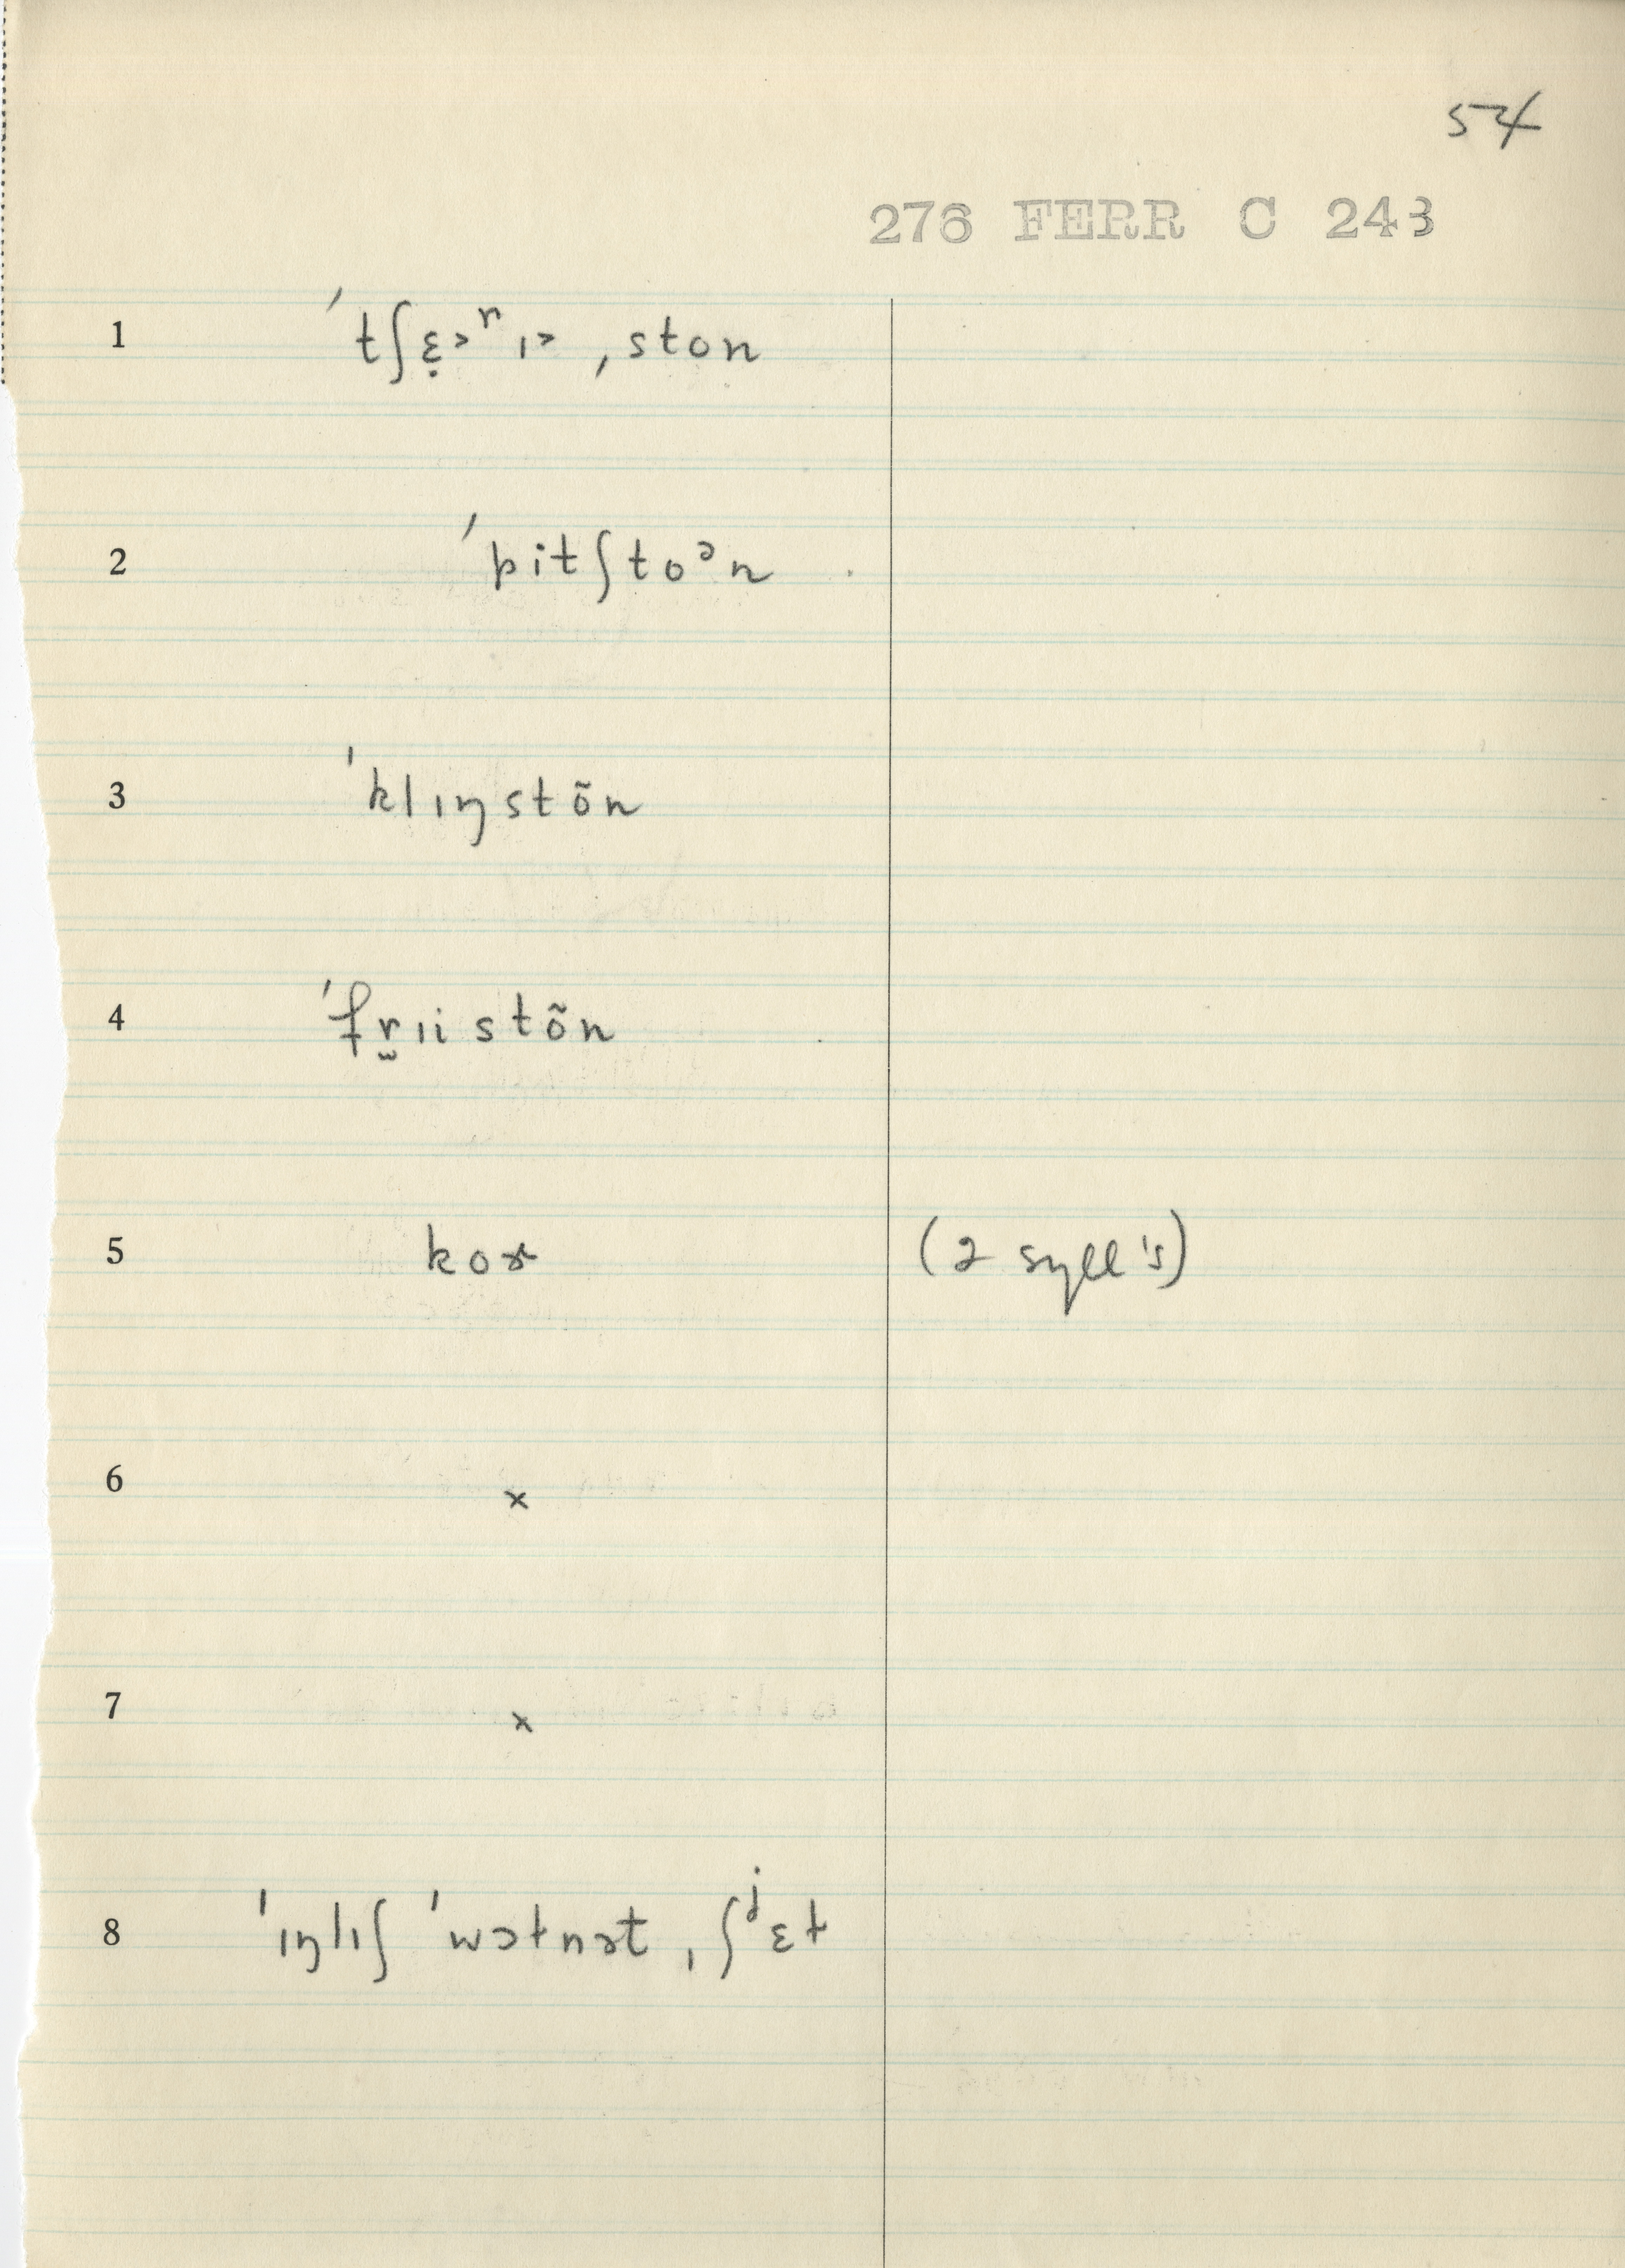 54
276 FERR C 243
1 ˈtʃɛ̣˃ʳɪ˃ ˌston
2 ˈpitʃtoᵊn
3 ˈklɪŋstõn
4 ˈfr̮ɪistõn
5 koɚ (2 syll's)
6 x
7 x
8 ˈɪŋlɪʃ ˈwɔtnət ˌʃʲɛt